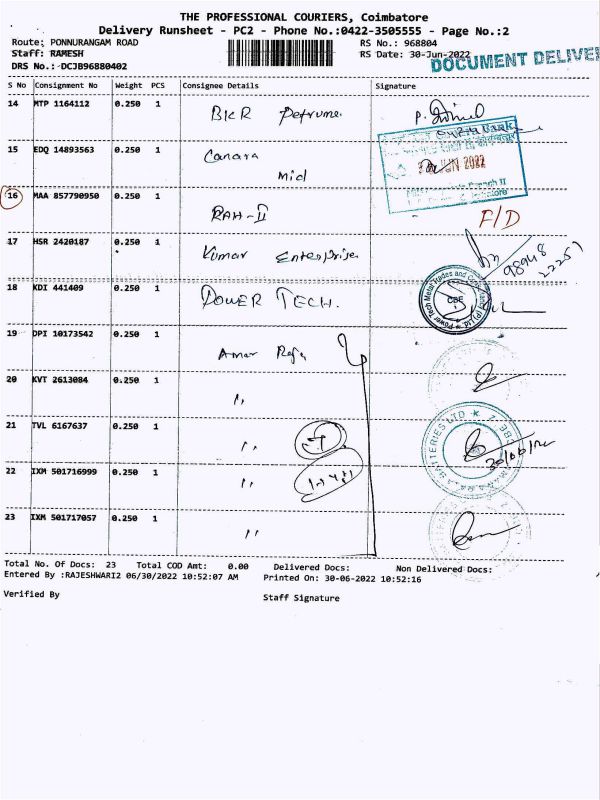 THE PROFESSIONAL COURIERS, Coimbatore
Delivery Runsheet - PC2 - Phone No.:0422-3505555 - Page No.:2
Route: PONNURANGAM ROAD RS No.: 968804
Staff: RAMESH RS Date: 30-Jun-2022
DOCUMENT DELIVE
DRS No.: DCJB96880402
S No Consignment No Weight PCS Consignee Details Signature
14 MTP 1164112 0.250 1 BKR Perfume
15 EDQ 14893563 0.250 1 Canara
Mid
JUN 2022
16 MAA 857790950 0.250 1 RAH-II F/D
17 HSR 2420187 0.250 1 Kumar Enterprise 98948
22251
18 KDI 441409 0.250 1 POWER TECH. Power Tech Metal Trades and CBE
19 DPI 10173542 0.250 1 Amar Raja
20 KVT 2613084 0.250 1 "
21 TVL 6167637 0.250 1 " BATTERIES LTD 30/06/22
22 IXM 501716999 0.250 1 "
23 IXM 501717057 0.250 1 "
Total No. Of Docs: 23 Total COD Amt: 0.00 Delivered Docs: Non Delivered Docs:
Entered By :RAJESHWARI2 06/30/2022 10:52:07 AM Printed On: 30-06-2022 10:52:16
Verified By Staff Signature